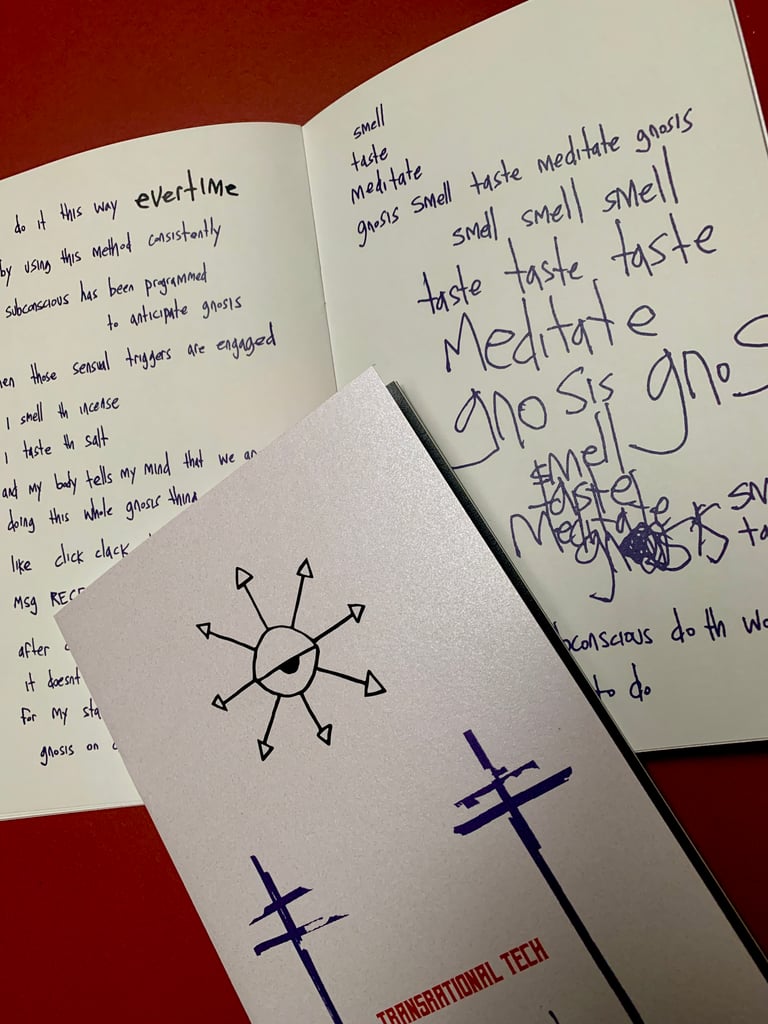 do it this way evertime
by using this method consistently
subconscious has been programmed
to anticipate gnosis
those sensual triggers are engaged
I smell th incense
I taste th salt
and my body tells my mind that we
doing this whole gnosis thing
like click clack
msg
after
it doesnt
for my
gnosis on
smell
taste
meditate
gnosis smell taste meditate gnosis
smell smell smell
taste taste taste
Meditate
gnosis
smell
taste
Meditate
gnosis
do th
to do
TRANSRATIONAL TECH